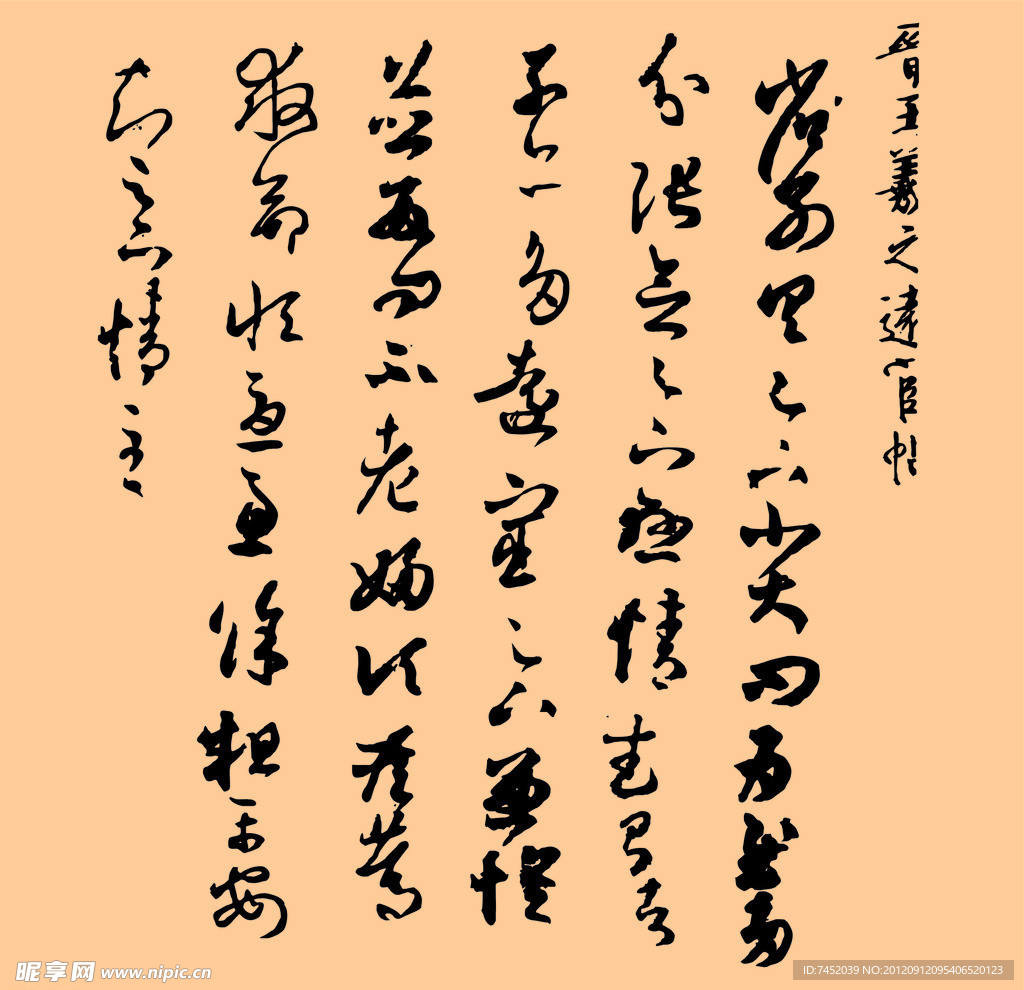 晉王羲之遠宦帖
省別具足下小大問為慰多
分張念足下懸情武昌諸
子亦多遠宦足下兼懷
並數問不老婦頃疾篤
救命恒憂慮餘粗平安
知足下情至
昵享网 www.nipic.cn
ID:7452039 NO:20120912095406520123